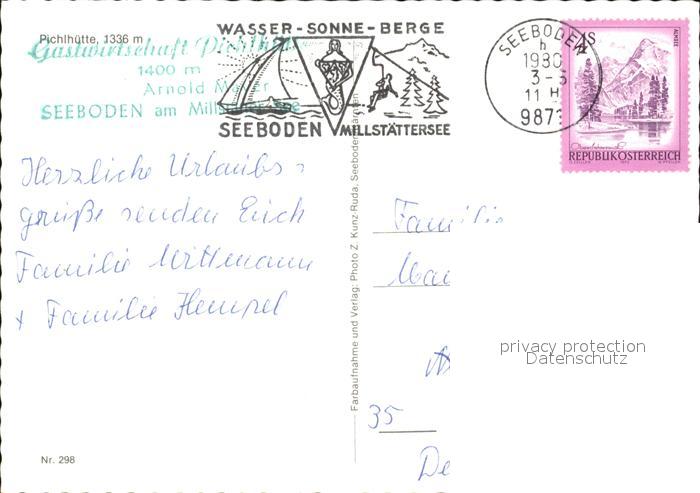 Pichlhütte, 1336 m
Gastwirtschaft Pichlhütte
1400 m
Arnold
SEEBODEN am Millstätter See
WASSER-SONNE-BERGE
SEEBODEN MILLSTÄTTERSEE
SEEBODEN
h
1980
11 H
987
4 S
ALMSEE
REPUBLIK ÖSTERREICH
Herzliche Urlaubs-
grüße senden Euch
Familie Wittmann
+ Familie Hempel
Nr. 298
Farbaufnahme und Verlag: Photo Z. Kunz-Ruda, Seeboden, Kärnten
Familie
35
De
privacy protection
Datenschutz